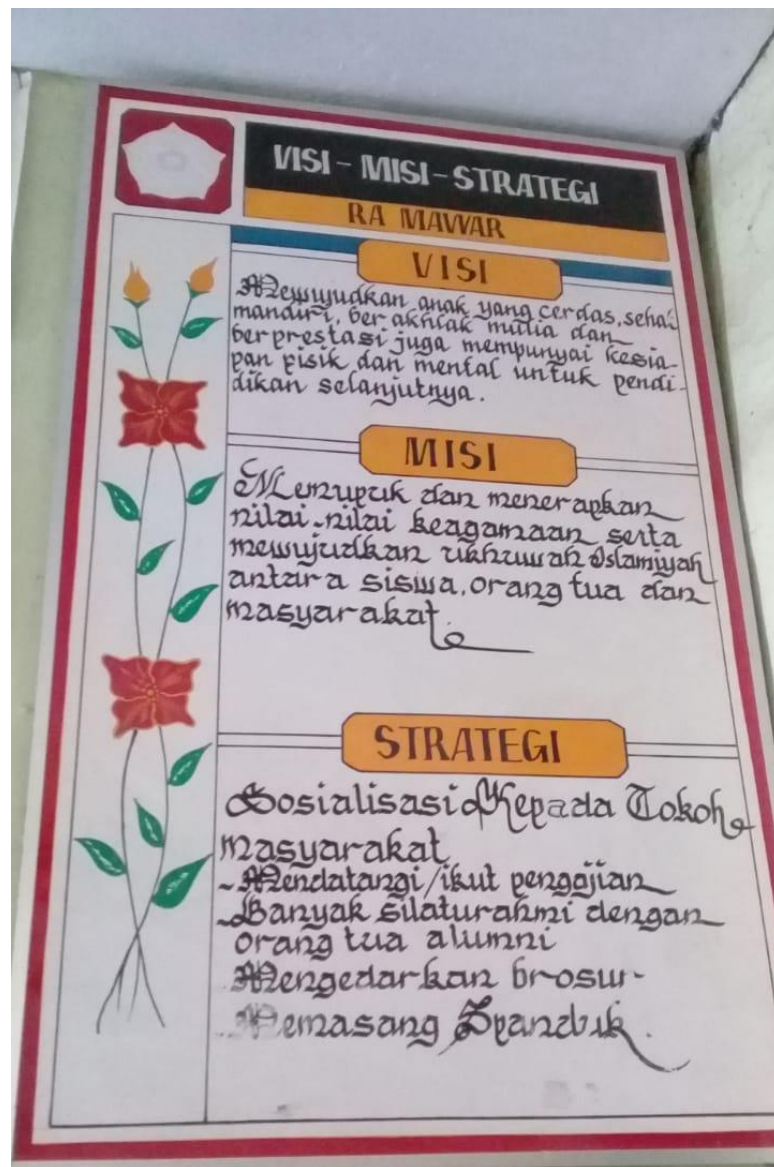 VISI - MISI - STRATEGI
RA MAWAR
VISI
Mewujudkan anak yang cerdas, sehat
mandiri, berakhlak mulia dan
berprestasi juga mempunyai kesia-
pan pisik dan mental untuk pendi-
dikan selanjutnya.
MISI
Memupuk dan menerapkan
nilai-nilai keagamaan serta
mewujudkan ukhuwah Islamiyah
antara siswa, orang tua dan
masyarakat.
STRATEGI
Sosialisasi Kepada Tokoh
masyarakat
- Mendatangi/ikut pengajian
- Banyak silaturahmi dengan
orang tua alumni
- Mengedarkan brosur -
- Memasang Spanduk.